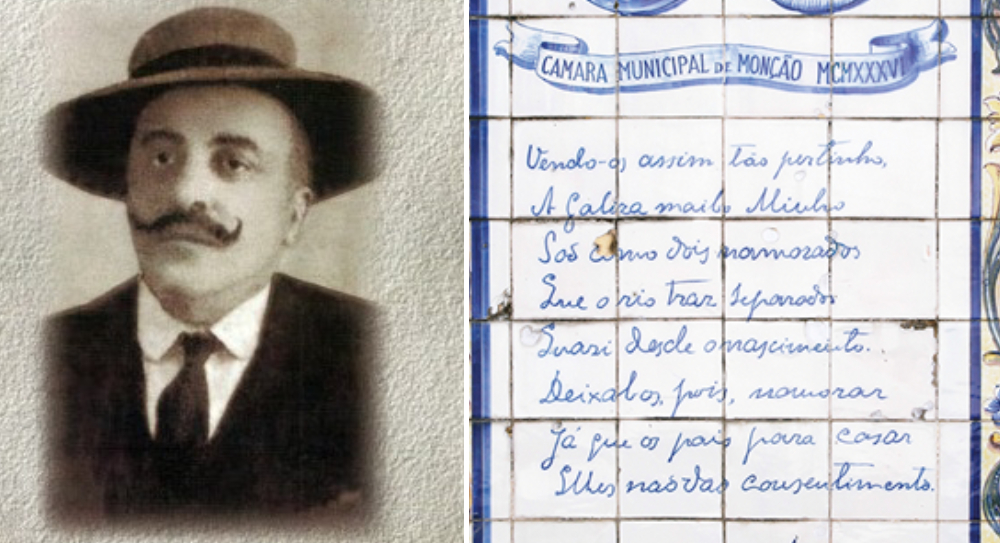 CAMARA MUNICIPAL DE MONÇÃO MCMXXXVI
Vendo-os assim tão pertinho,
A Galiza mailo Minho
São como dois namorados
Que o rio traz separados
Quasi desde o nascimento.
Deixalos, pois, namorar
Já que os pais para casar
Lhes não dão consentimento.